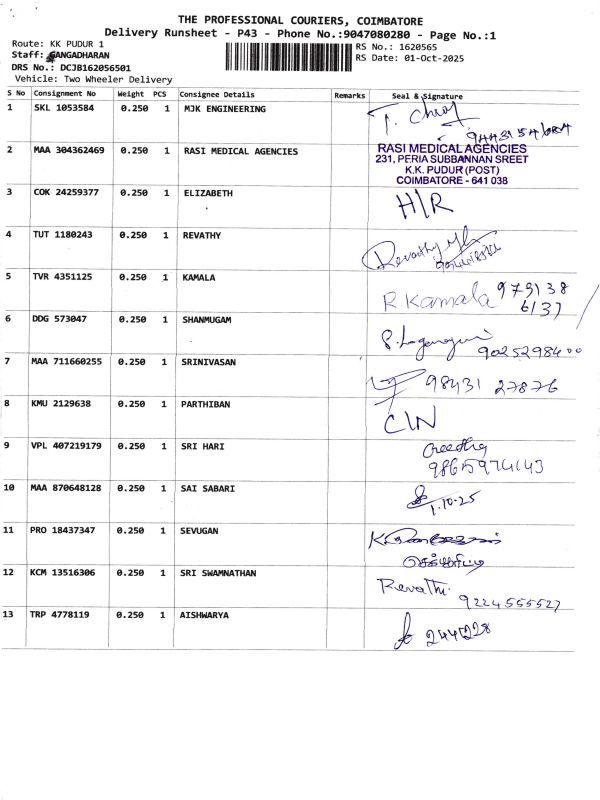 THE PROFESSIONAL COURIERS, COIMBATORE
Delivery Runsheet - P43 - Phone No.:9047080280 - Page No.:1
Route: KK PUDUR 1
RS No.: 1620565
Staff: GANGADHARAN
RS Date: 01-Oct-2025
DRS No.: DCJB162056501
Vehicle: Two Wheeler Delivery
S No Consignment No Weight PCS Consignee Details Remarks Seal & Signature
1 SKL 1053584 0.250 1 MJK ENGINEERING
2 MAA 304362469 0.250 1 RASI MEDICAL AGENCIES
RASI MEDICAL AGENCIES
231, PERIA SUBBANNAN SREET
K.K. PUDUR (POST)
COIMBATORE - 641 038
3 COK 24259377 0.250 1 ELIZABETH
H/R
4 TUT 1180243 0.250 1 REVATHY
Revathy
5 TVR 4351125 0.250 1 KAMALA
R Kamala 979138
6137
6 DDG 573047 0.250 1 SHANMUGAM
9025298400
7 MAA 711660255 0.250 1 SRINIVASAN
98431 27876
8 KMU 2129638 0.250 1 PARTHIBAN
C/N
9 VPL 407219179 0.250 1 SRI HARI
9865974143
10 MAA 870648128 0.250 1 SAI SABARI
1.10.25
11 PRO 18437347 0.250 1 SEVUGAN
12 KCM 13516306 0.250 1 SRI SWAMNATHAN
Revathi
9224555527
13 TRP 4778119 0.250 1 AISHWARYA